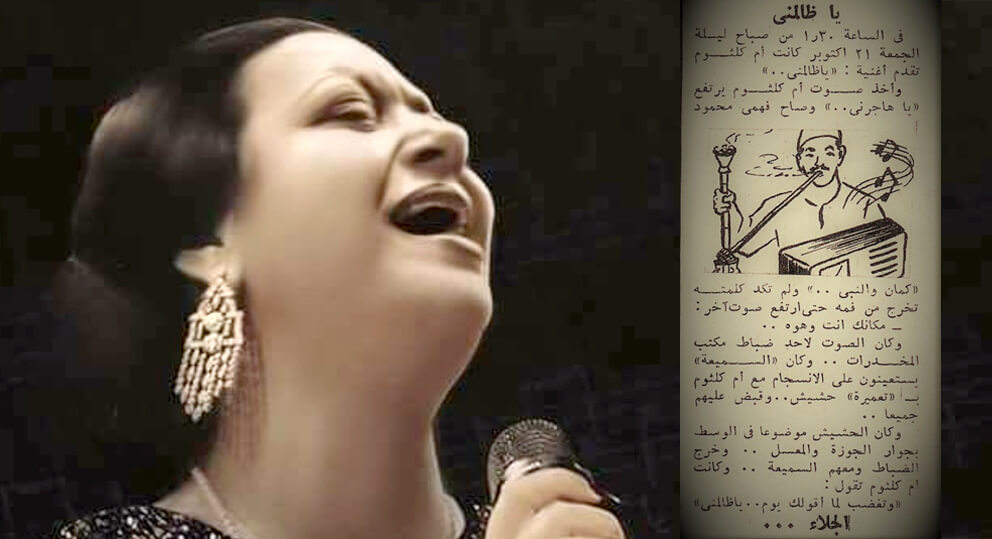 يا ظالمنى
فى الساعة ١٫٣٠ من صباح ليلة
الجمعة ٢١ اكتوبر كانت أم كلثوم
تقدم أغنية : «ياظالمنى..»
وأخذ صوت أم كلثوم يرتفع
«يا هاجرنى..» وصاح فهمى محمود
«كمان والنبى ..» ولم تكد كلمته
تخرج من فمه حتى ارتفع صوت آخر :
ـ مكانك انت وهوه ..
وكان الصوت لاحد ضباط مكتب
المخدرات .. وكان «السميعة»
يستعينون على الانسجام مع أم كلثوم
بـ «تعميرة» حشيش..وقبض عليهم
جميعا ..
وكان الحشيش موضوعا فى الوسط
بجوار الجوزة والمعسل .. وخرج
الضباط ومعهم السميعة .. وكانت
ام كلثوم تقول :
«وتغضب لما أقولك يوم..ياظالمنى»
الجلاء ...